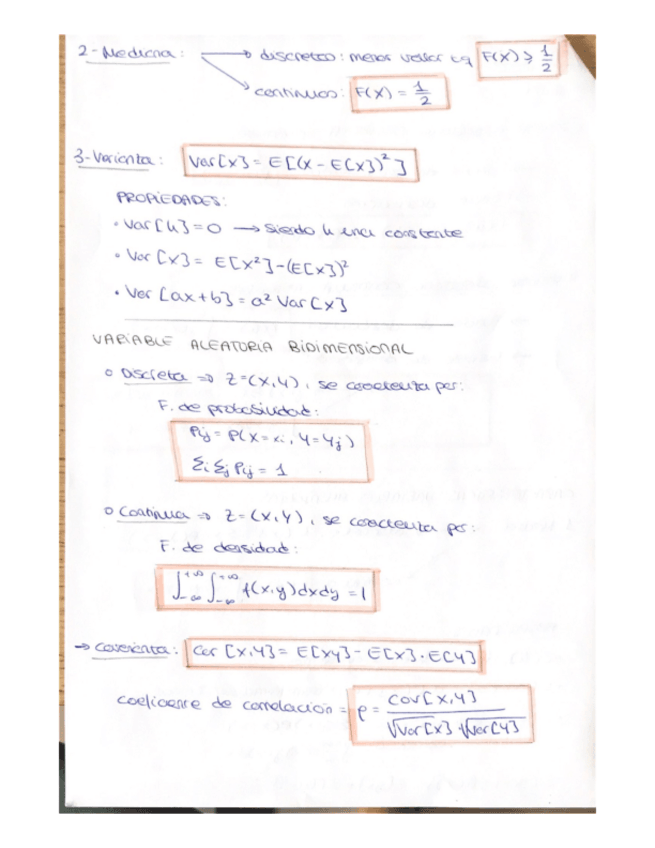 2- Mediana: → discretas: menor valor tq F(x) ≥ 1/2
→ continuas: F(x) = 1/2
3- Varianza: Var[x] = E[(x - E[x])²]
PROPIEDADES:
• Var[k] = 0 → siendo k una constante
• Var[x] = E[x²] - (E[x])²
• Var[ax+b] = a² Var[x]
VARIABLE ALEATORIA BIDIMENSIONAL
○ Discreta ⇒ Z=(X,Y), se caracteriza por:
F. de probabilidad:
Pij = P(X=xi, Y=Yj)
Σi Σj Pij = 1
○ Continua ⇒ Z=(X,Y), se caracteriza por:
F. de densidad:
∫-∞+∞ ∫-∞+∞ f(x,y)dxdy = 1
→ Covarianza: Cov[X,Y] = E[XY] - E[X]·E[Y]
coeficiente de correlación = ρ = Cov[X,Y] / √Var[X] · √Var[Y]